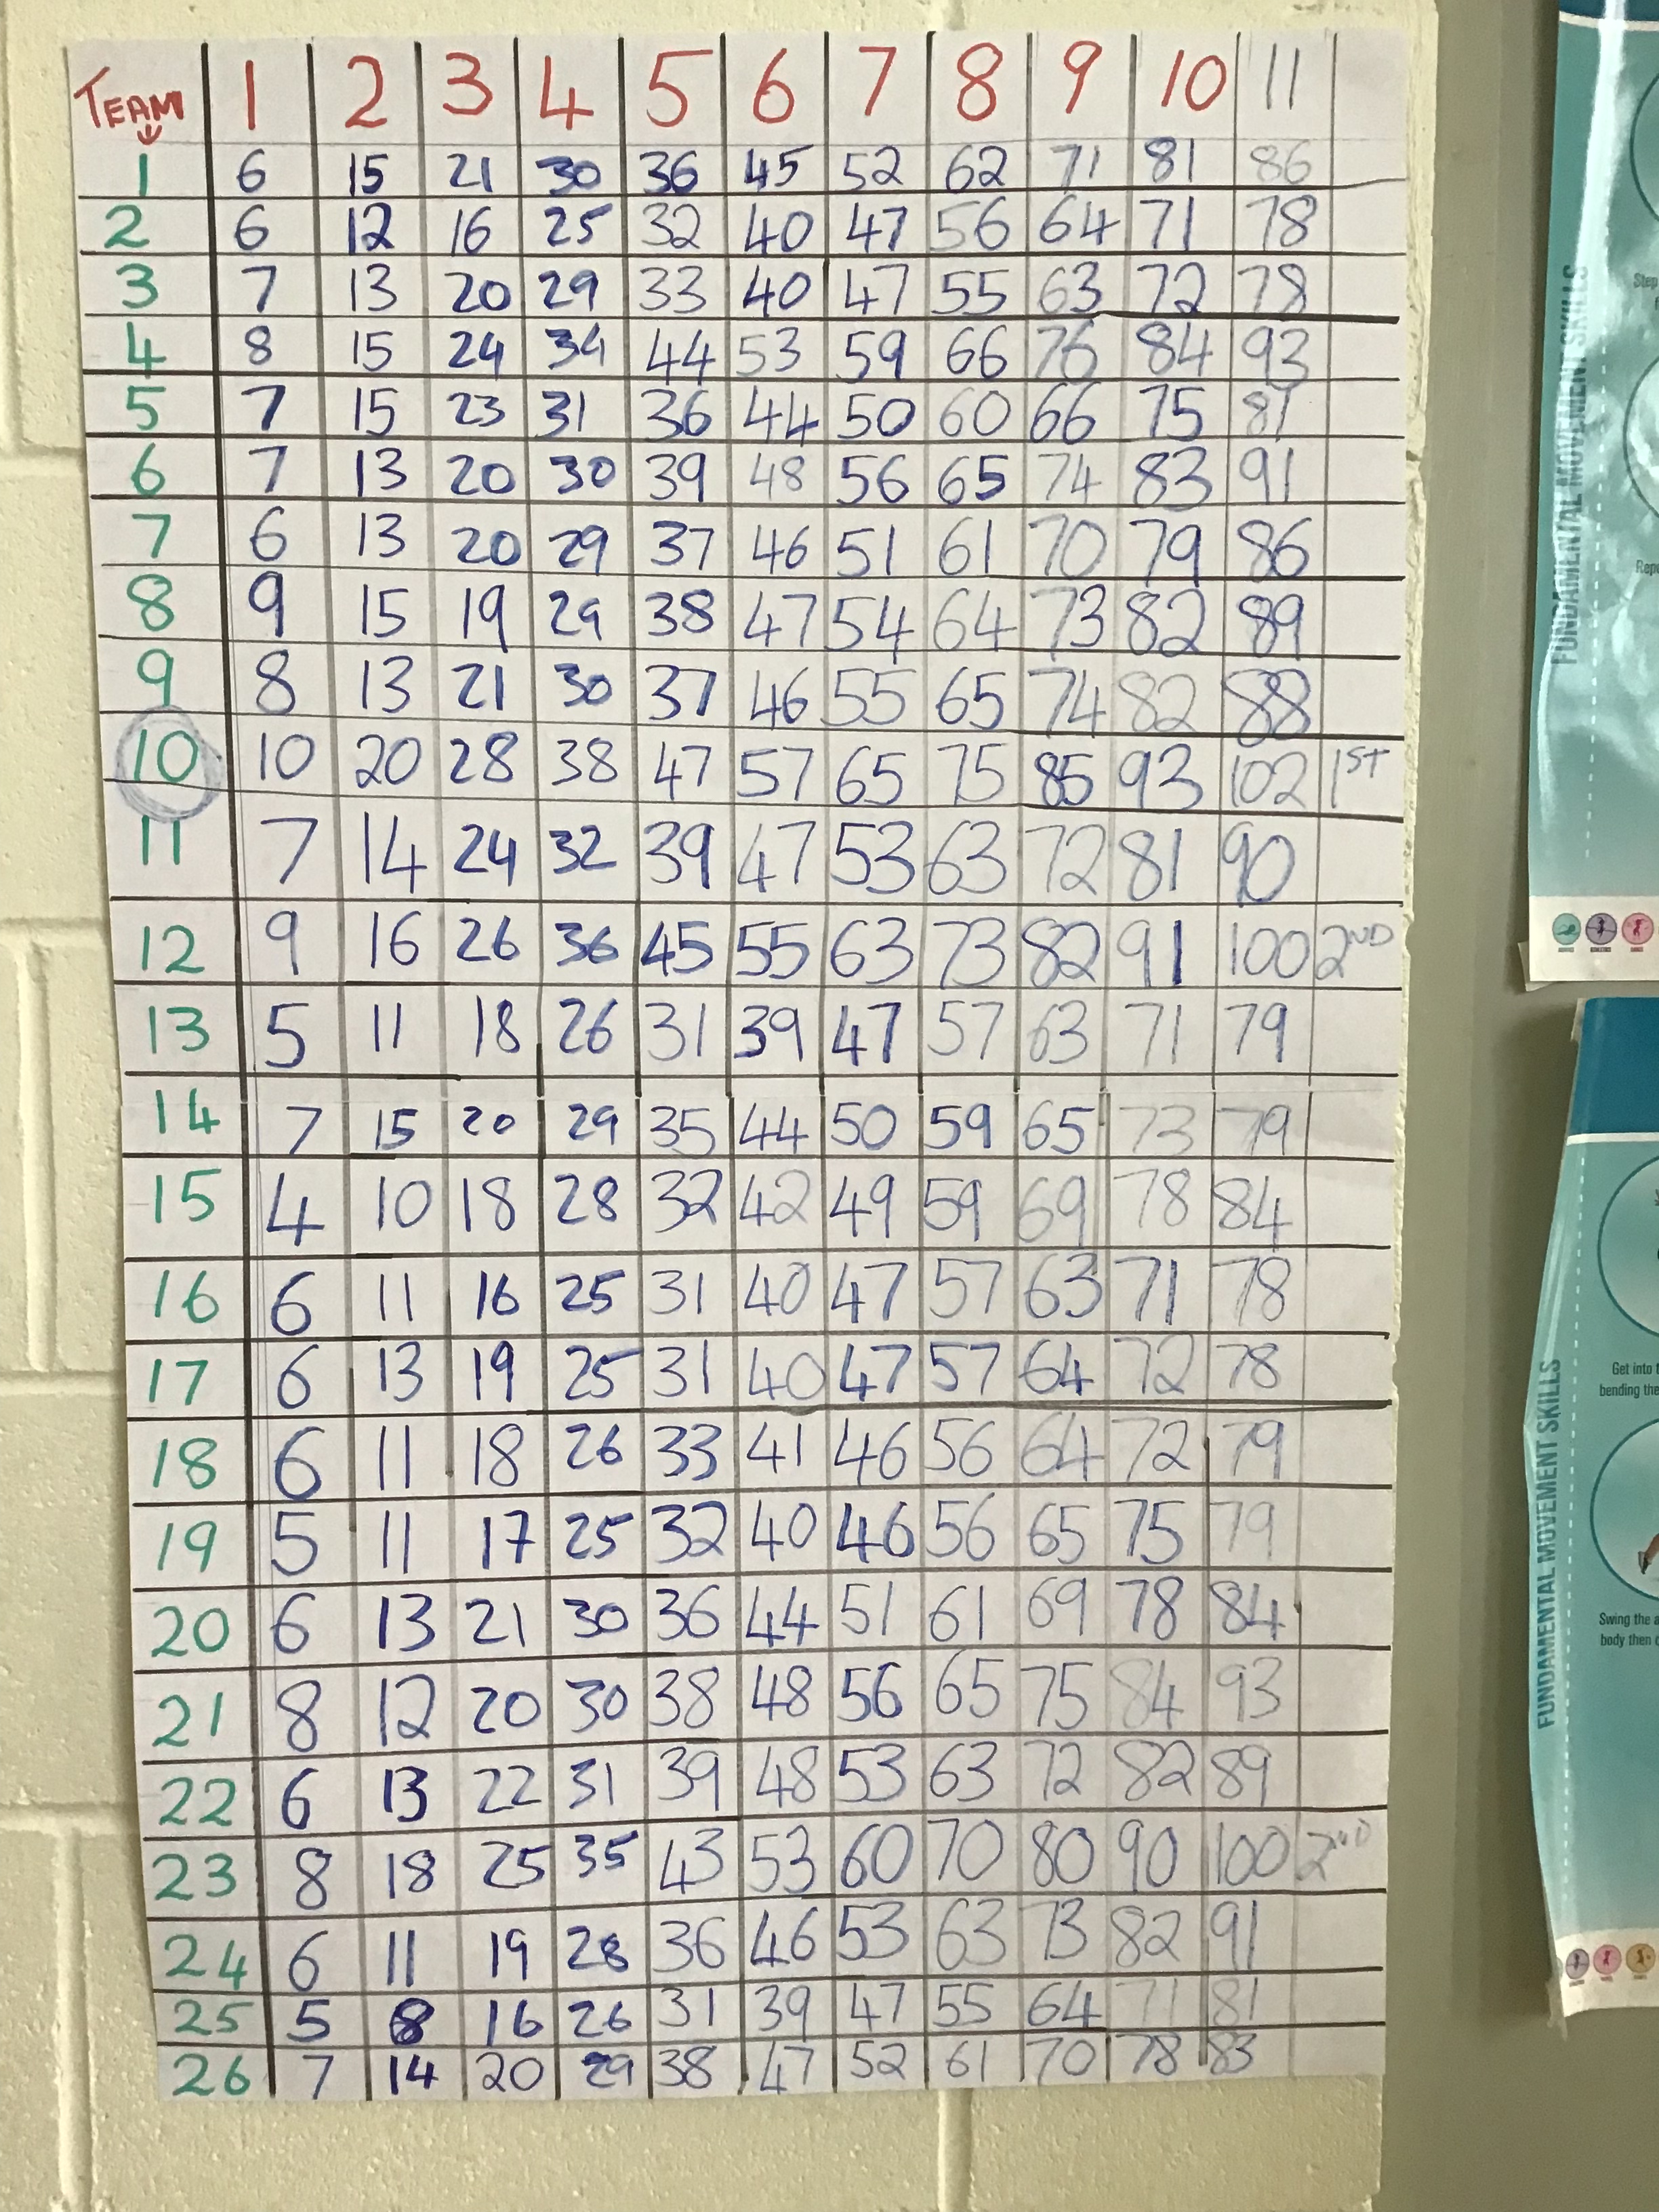 TEAM 1 2 3 4 5 6 7 8 9 10 11
1 6 15 21 30 36 45 52 62 71 81 86
2 6 12 16 25 32 40 47 56 64 71 78
3 7 13 20 29 33 40 47 55 63 72 78
4 8 15 24 34 44 53 59 66 76 84 93
5 7 15 23 31 36 44 50 60 66 75
6 7 13 20 30 39 48 56 65 74 83 91
7 6 13 20 29 37 46 51 61 70 79 86
8 9 15 19 29 38 47 54 64 73 82 89
9 8 13 21 30 37 46 55 65 74 82 88
10 10 20 28 38 47 57 65 75 85 93 102 1ST
11 7 14 24 32 39 47 53 63 72 81 90
12 9 16 26 36 45 55 63 73 82 91 100 2ND
13 5 11 18 26 31 39 47 57 63 71 79
14 7 15 20 29 35 44 50 59 65 73 79
15 4 10 18 28 32 42 49 59 69 78 84
16 6 11 16 25 31 40 47 57 63 71 78
17 6 13 19 25 31 40 47 57 64 72 78
18 6 11 18 26 33 41 46 56 64 72 79
19 5 11 17 25 32 40 46 56 65 75 79
20 6 13 21 30 36 44 51 61 69 78 84
21 8 12 20 30 38 48 56 65 75 84 93
22 6 13 22 31 39 48 53 63 72 82 89
23 8 18 25 35 43 53 60 70 80 90 100 2ND
24 6 11 19 28 36 46 53 63 73 82 91
25 5 8 16 26 31 39 47 55 64 71 81
26 7 14 20 29 38 47 52 61 70 78 83
FUNDAMENTAL MOVEMENT SKILLS
Step
FUNDAMENTAL MOVEMENT SKILLS
Get into
bending the
Swing the a
body then